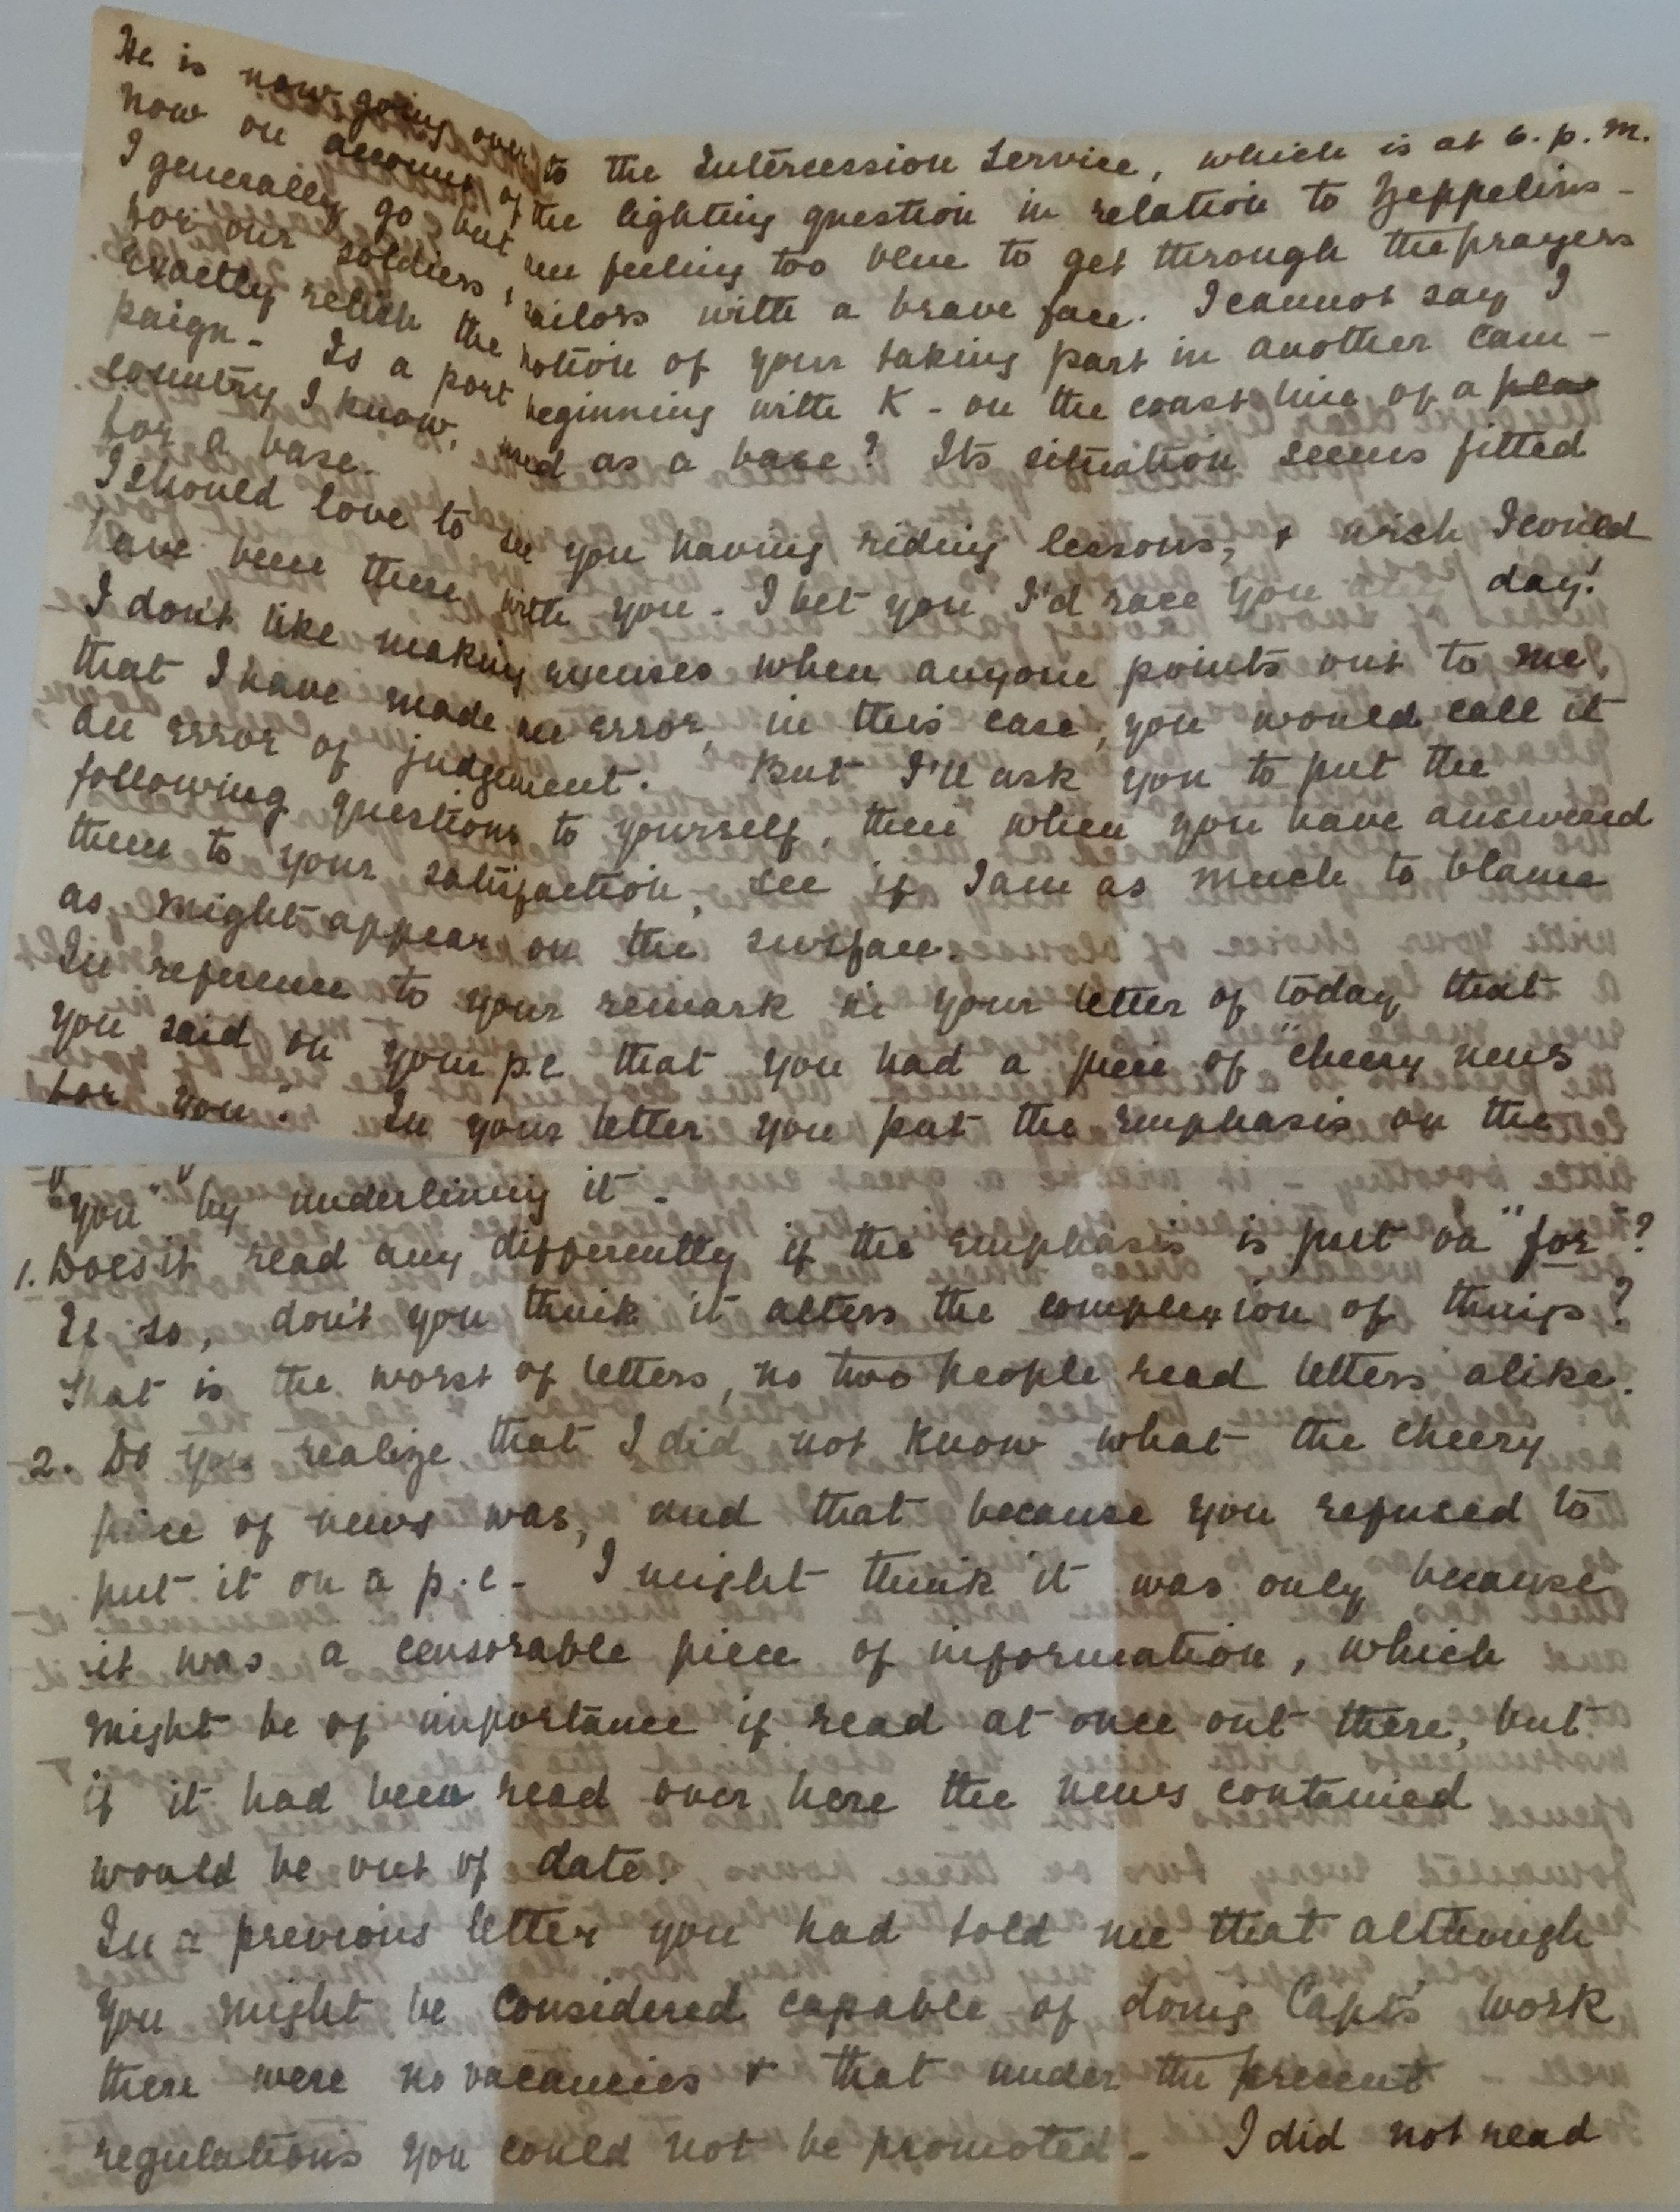 He is now going over to the Intercession Service, which is at 6. p. m.
now on account of the lighting question in relation to Zeppelins -
I generally go but am feeling too blue to get through the prayers
for our soldiers, sailors with a brave face. I cannot say I
exactly relish the notion of your taking part in another cam-
paign - Is a port beginning with K - on the coast line of a
country I know, used as a base? Its situation seems fitted
for a base.
I should love to see you having riding lessons, & wish I could
have been there with you - I bet you I'd race you any day!
I don't like making excuses when anyone points out to me,
that I have made an error, in this case, you would call it
an error of judgement. But I'll ask you to put the
following questions to yourself, then when you have answered
them to your satisfaction, see if I am as much to blame
as might appear on the surface.
In reference to your remark in your letter of today that
you said on your p.c that you had a piece of "cheery news
for you". In your letter you put the emphasis on the
"you" by underlining it -
1. Does it read any differently if the emphasis is put on "for"?
If so, don't you think it alters the complexion of things?
That is the worst of letters, no two people read letters alike.
2. Do you realize that I did not know what the cheery
piece of news was, and that because you refused to
put it on a p.c - I might think it was only because
it was a censorable piece of information, which
might be of importance if read at once out there, but
if it had been read over here the news contained
would be out of date.
In a previous letter you had told me that although
you might be considered capable of doing Capt's work
there were no vacancies & that under the present
regulations you could not be promoted - I did not read